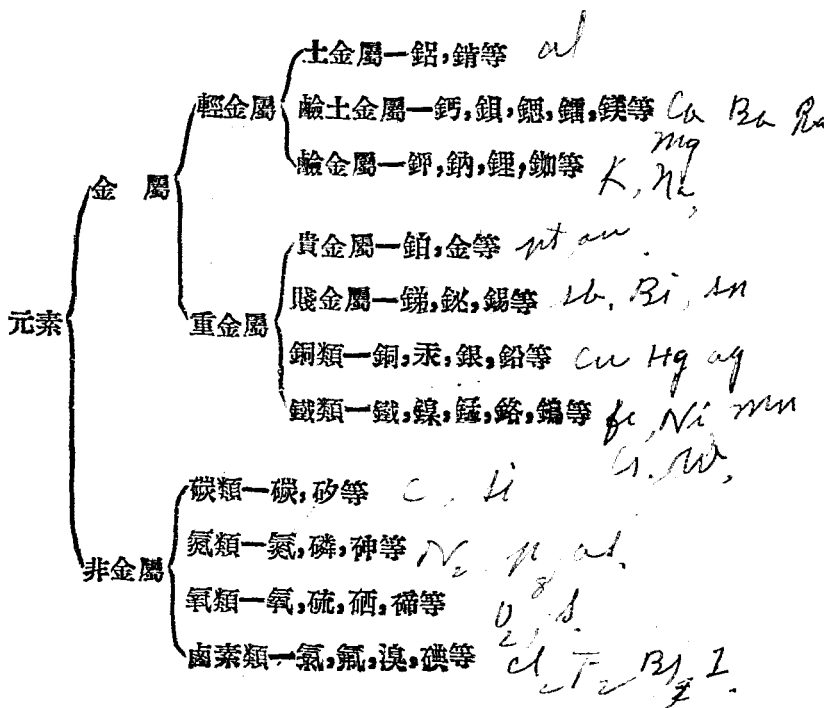 土金屬—鋁,錆等 al
輕金屬
鹼土金屬—鈣,鋇,鍶,鐳,鎂等 Ca Ba Ra
mg
鹼金屬—鉀,鈉,鋰,銣等 K, Na,
金屬
貴金屬—鉑,金等 pt, au.
賤金屬—銻,鉍,錫等 sb, Bi, sn
元素
重金屬
銅類—銅,汞,銀,鉛等 Cu Hg ag
鐵類—鐵,鎳,錳,鉻,鎢等 fe, Ni mn
Cr, W,
碳類—碳,矽等 C, Si
氮類—氮,磷,砷等 N2 p as.
非金屬
氧類—氧,硫,硒,碲等 O2, S.
鹵素類—氯,氟,溴,碘等 Cl2 F2 Br2 I.